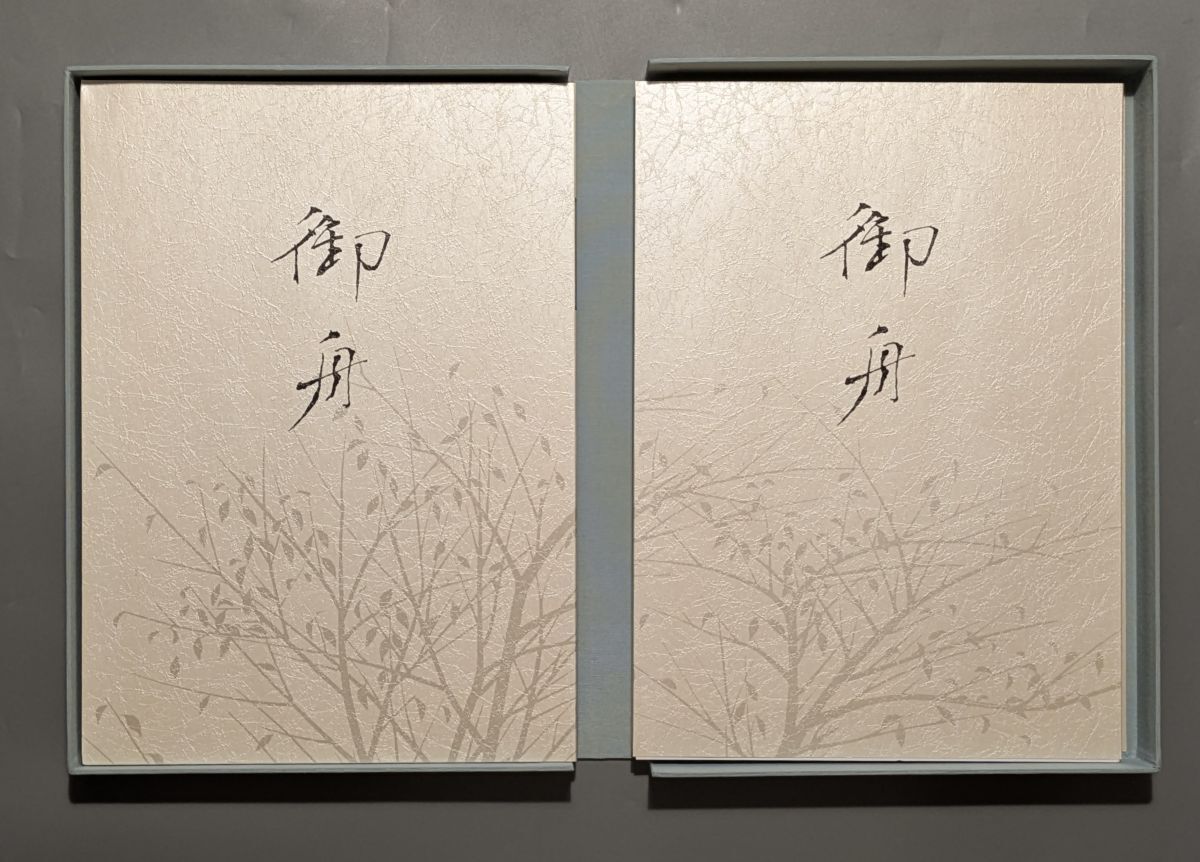 御舟
御舟